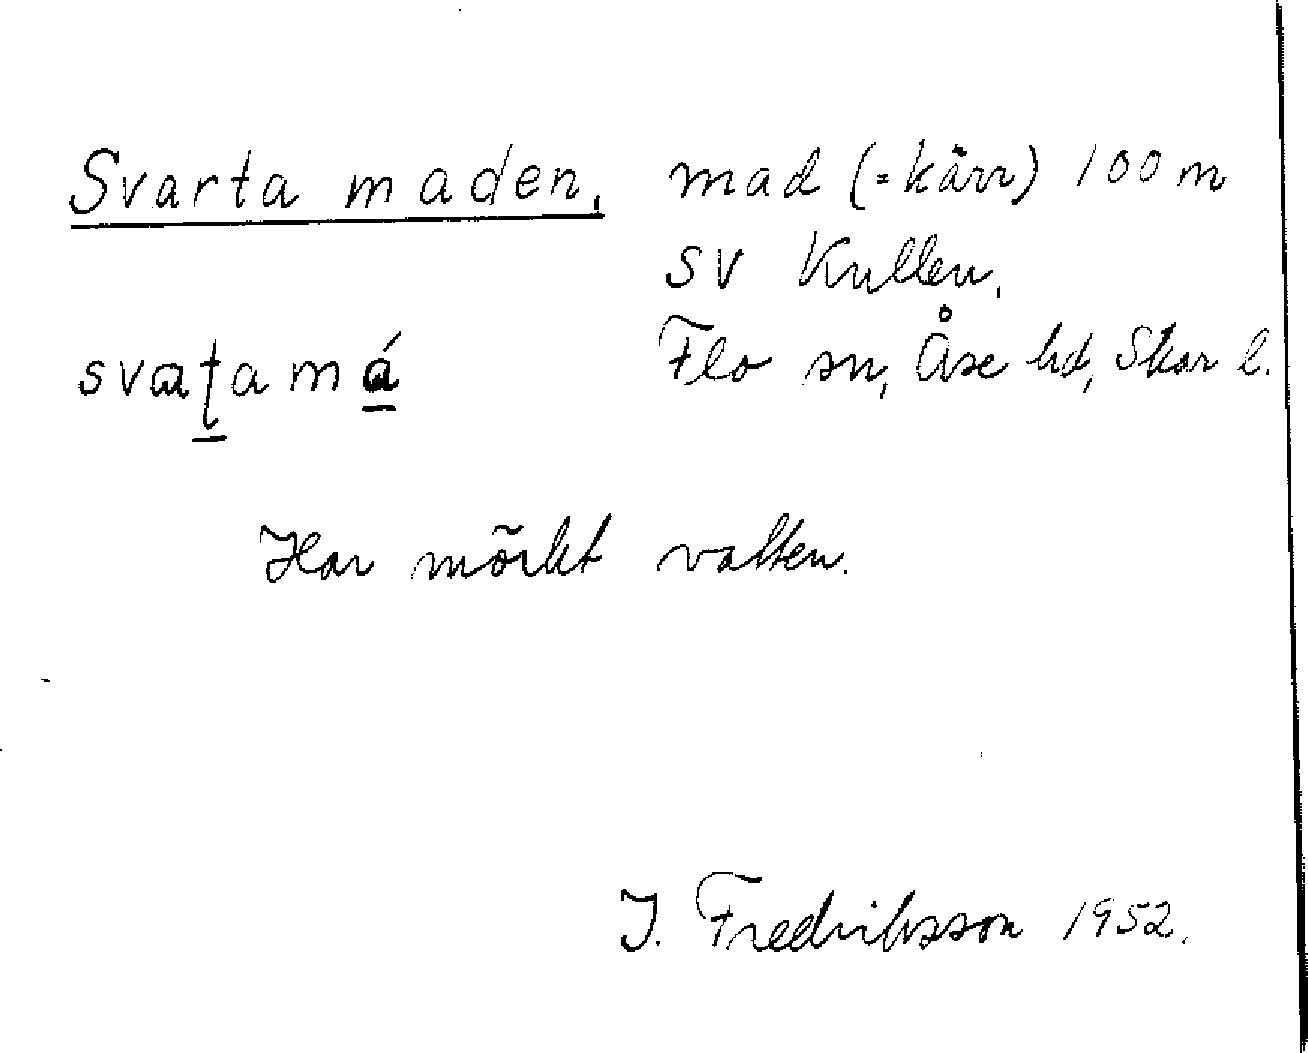 Svarta maden, mad (=kärr) 100 m
SV Kullen.
svaʈamá Flo sn, Åse hd, Skar l.
Har mörkt vatten.
I. Fredriksson 1952.